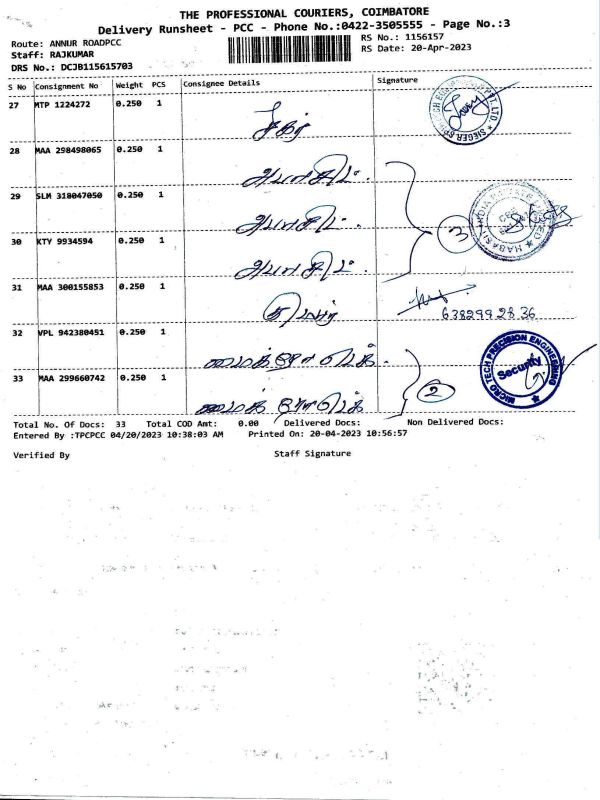 THE PROFESSIONAL COURIERS, COIMBATORE
Delivery Runsheet - PCC - Phone No.:0422-3505555 - Page No.:3
Route: ANNUR ROADPCC
RS No.: 1156157
Staff: RAJKUMAR
RS Date: 20-Apr-2023
DRS No.: DCJB115615703
S No Consignment No Weight PCS Consignee Details Signature
27 MTP 1224272 0.250 1
28 MAA 298498065 0.250 1
29 SLM 318047050 0.250 1
30 KTY 9934594 0.250 1
3
31 MAA 300155853 0.250 1
6382992836
32 VPL 942380451 0.250 1
MICRO TECH PRECISION ENGINEERING
Security
33 MAA 299660742 0.250 1
2
Total No. Of Docs: 33 Total COD Amt: 0.00 Delivered Docs: Non Delivered Docs:
Entered By :TPCPCC 04/20/2023 10:38:03 AM Printed On: 20-04-2023 10:56:57
Verified By Staff Signature